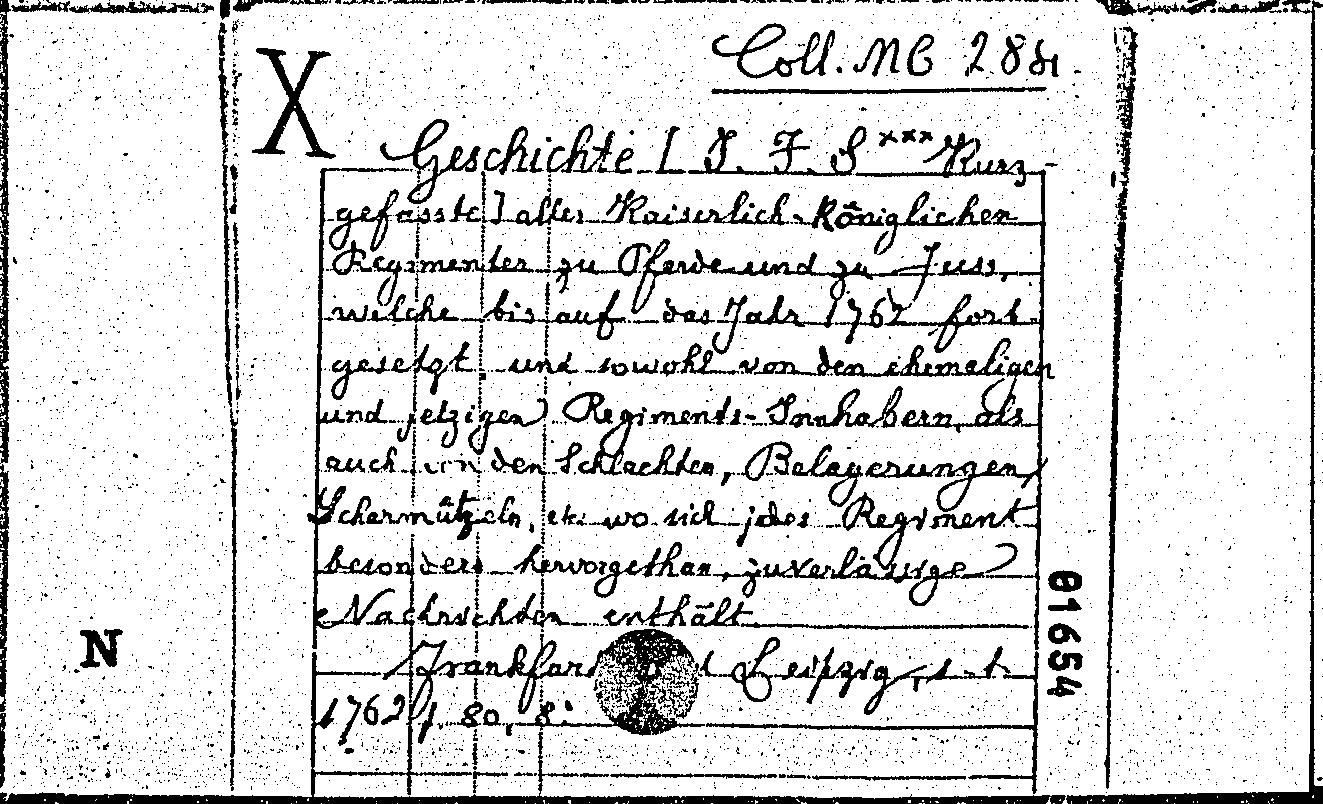 Coll. MC 28
X
Geschichte [ J. F. S *** Kurz-
gefasste] aller Kaiserlich-Königlichen
Regimenter zu Pferde und zu Fuss,
welche bis auf das Jahr 1762 fort-
gesetzt, und sowohl von den ehemaligen
und jetzigen Regiments-Innhabern, als
auch von den Schlachten, Belagerungen,
Scharmützeln, etc. wo sich jedes Regiment
besonders hervorgethan, zuverlässige
Nachrichten enthält.
Frankfurt Leipzig, s. t.
1762, 80, 8°
N
01654